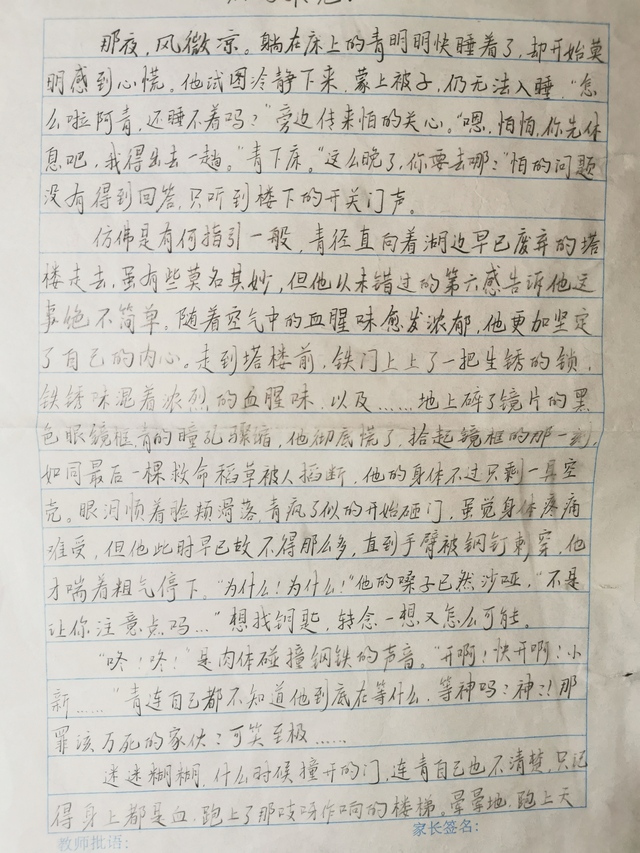 那夜，风微凉。躺在床上的青明明快睡着了，却开始莫
明感到心慌。他试图冷静下来，蒙上被子，仍无法入睡，“怎
么啦阿青，还睡不着吗？”旁边传来怕的关心。“嗯，怕怕，你先休
息吧，我得出去一趟。”青下床。“这么晚了，你要去哪？”怕的问题
没有得到回答，只听到楼下的开关门声。
仿佛是有何指引一般，青径直向着湖边早已废弃的塔
楼走去，虽有些莫名其妙，但他从未错过的第六感告诉他这
事绝不简单。随着空气中的血腥味愈发浓郁，他更加坚定
了自己的内心。走到塔楼前，铁门上上了一把生锈的锁，
铁锈味混着浓烈的血腥味，以及……地上碎了镜片的黑
色眼镜框，青的瞳孔骤缩，他彻底慌了，拾起镜框的那一刻，
如同最后一棵救命稻草被人掐断，他的身体不过只剩一具空
壳。眼泪顺着脸颊滑落，青疯了似的开始砸门，虽觉身体疼痛
难受，但他此时早已故不得那么多，直到手臂被钢钉刺穿，他
才喘着粗气停下。“为什么！为什么！”他的嗓子已然沙哑，“不是
让你注意点吗…”想找钥匙，转念一想又怎么可能。
“咚！咚！”是肉体碰撞钢铁的声音。“开啊！快开啊！小
新……”青连自己都不知道他到底在等什么，等神吗？神？！那
罪该万死的家伙？可笑至极……
迷迷糊糊，什么时候撞开的门，连青自己也不清楚，只记
得身上都是血，跑上了那吱呀作响的楼梯。晕晕地，跑上天
教师批语：
家长签名：